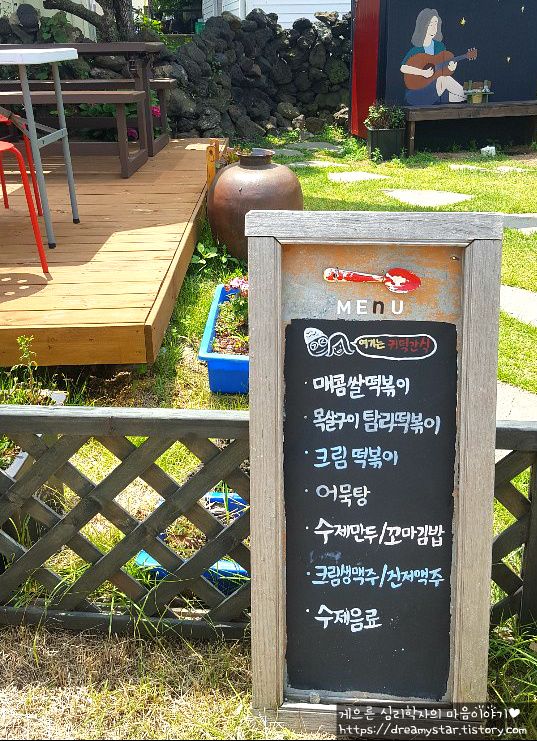 MEnU
여기는 귀덕간식
· 매콤쌀떡볶이
· 목살구이 탐리떡볶이
· 크림 떡볶이
· 어묵탕
· 수제만두/꼬마김밥
· 크림생맥주/진저맥주
· 수제음료
게으른 심리학자의 마음이야기♥
https://dreamystar.tistory.com